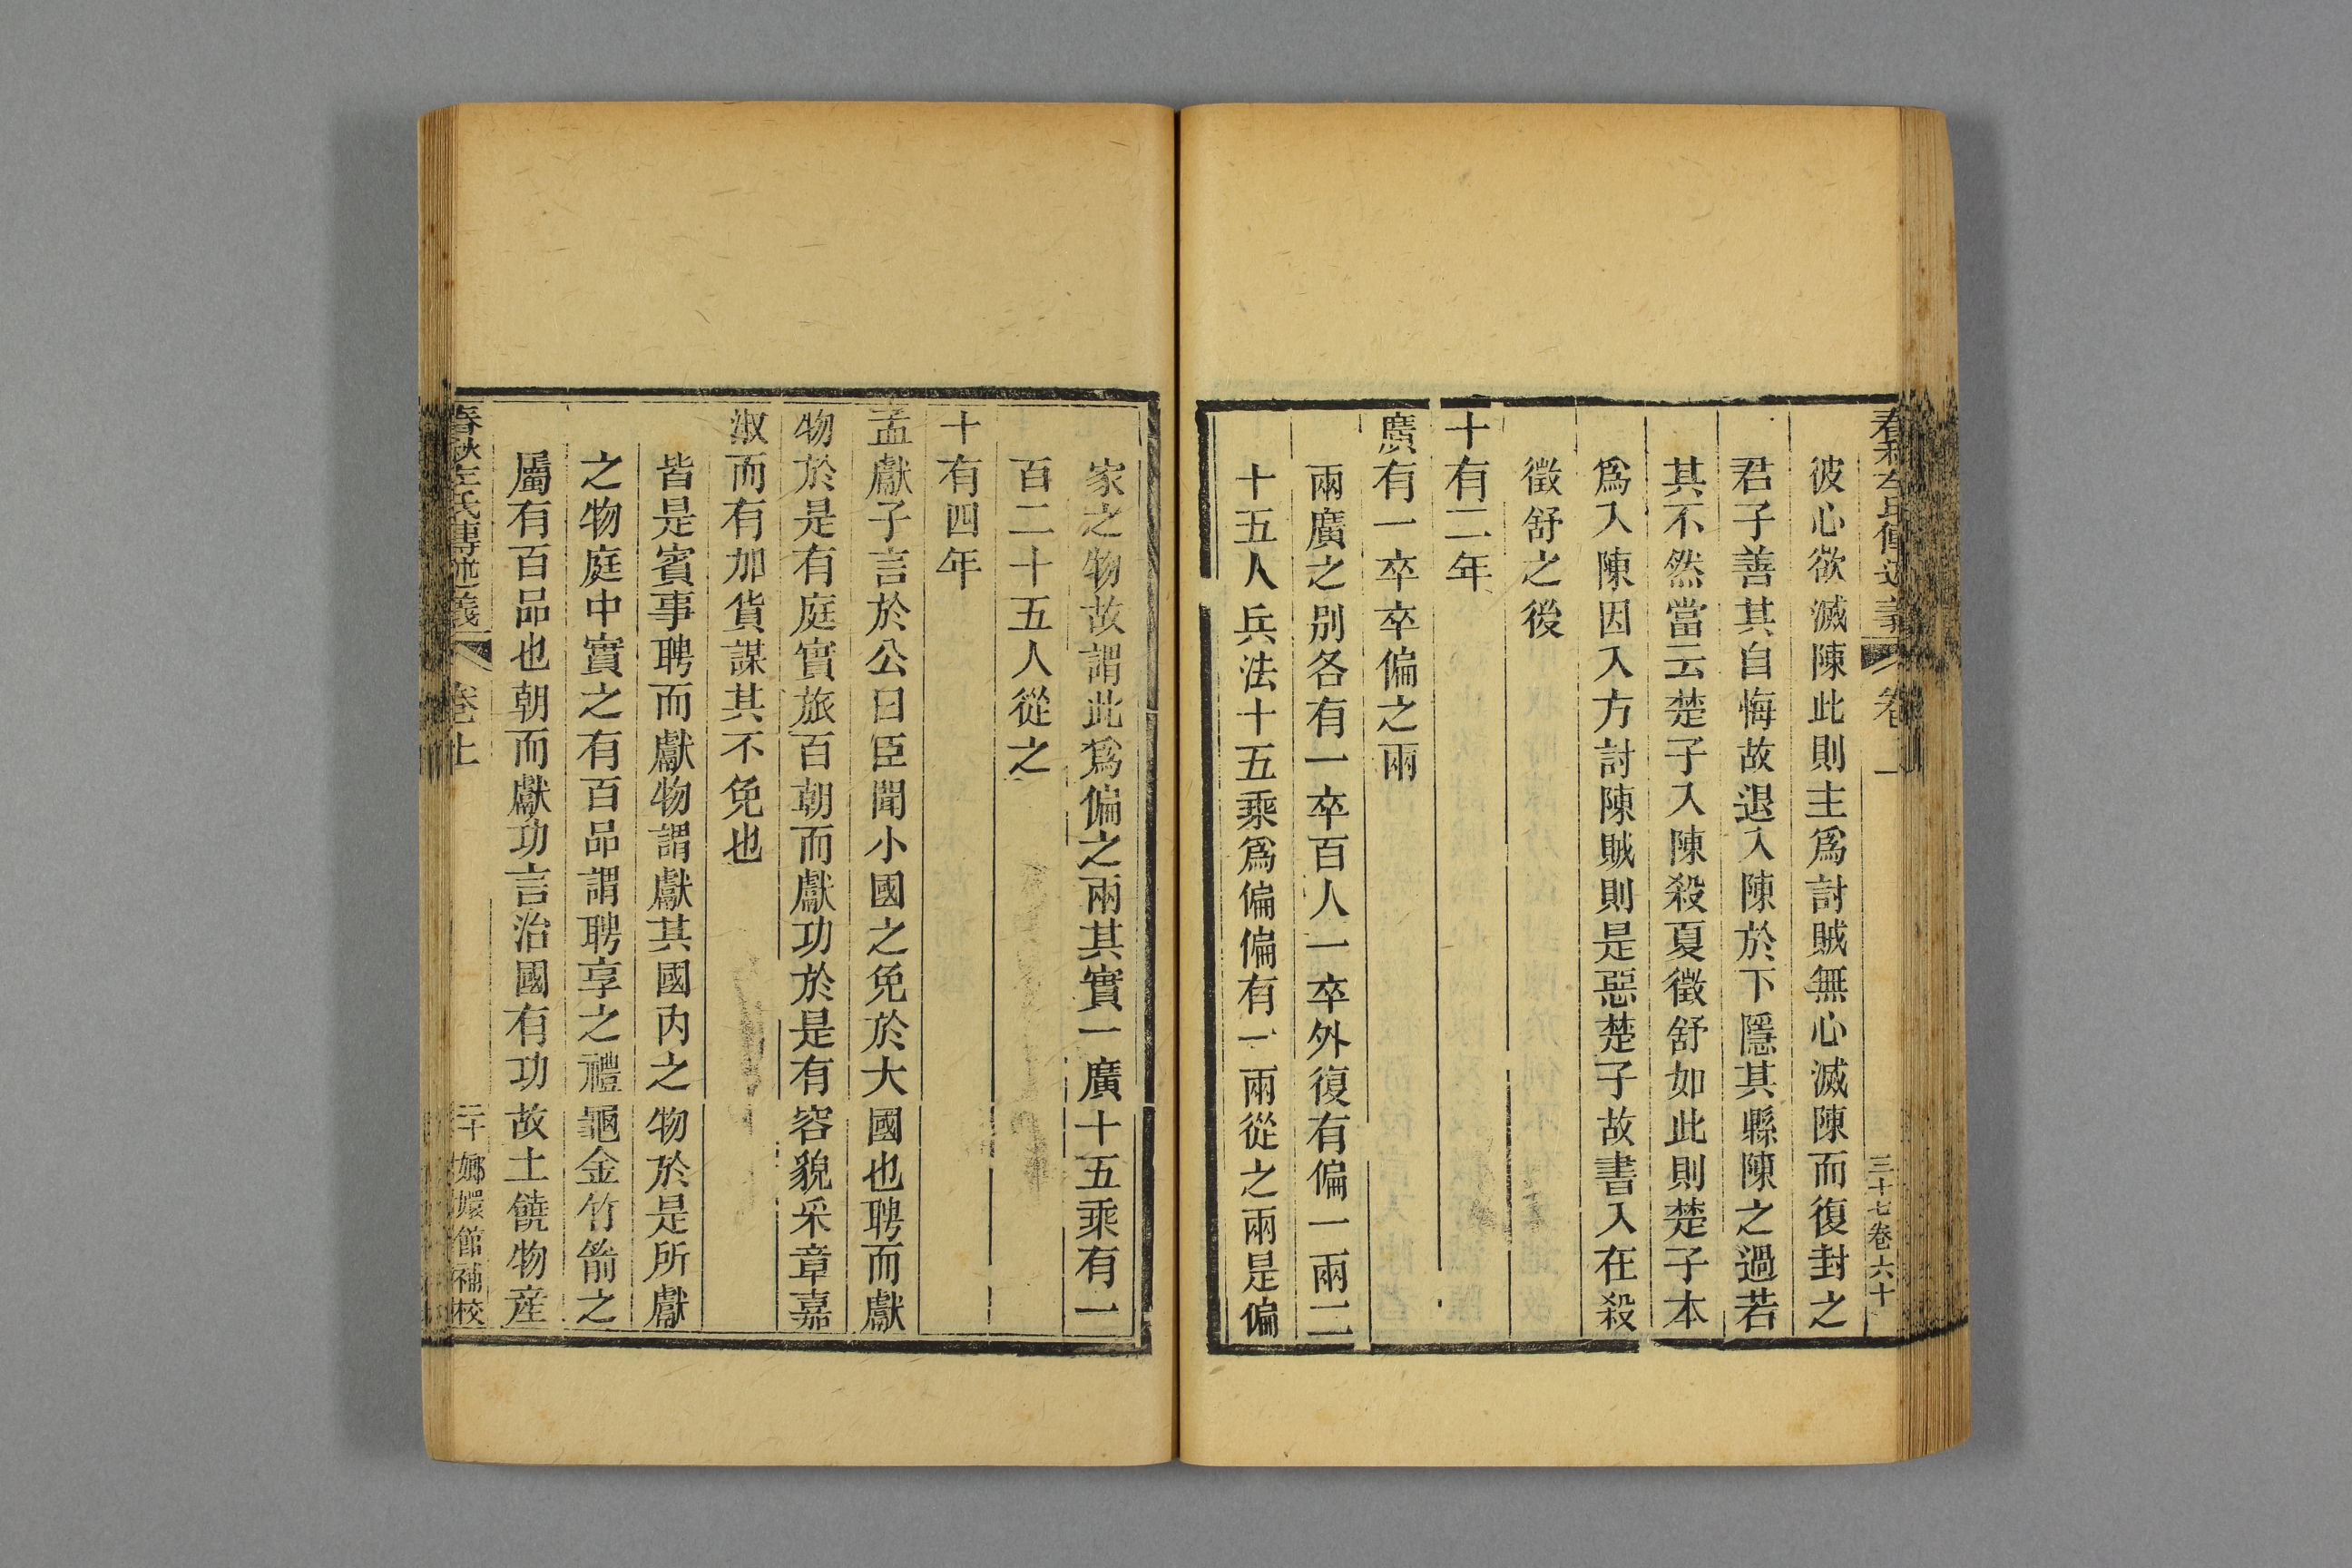 彼心欲滅陳此則主爲討賊無心滅陳而復封之
君子善其自悔故退入陳於下隱其縣陳之過若
其不然當云楚子入陳殺夏徵舒如此則楚子本
爲入陳因入方討陳賊則是惡楚子故書入在殺
徵舒之後
十有二年
廣有一卒卒偏之兩
兩廣之别各有一卒百人一卒外復有偏一兩二
十五人兵法十五乘爲偏偏有一兩從之兩是偏
家之物故謂此爲偏之兩其實一廣十五乘有一
百二十五人從之
十有四年
孟獻子言於公曰臣聞小國之免於大國也聘而獻
物於是有庭實旅百朝而獻功於是有容貌采章嘉
淑而有加貨謀其不免也
皆是賓事聘而獻物謂獻其國内之物於是所獻
之物庭中實之有百品謂聘享之禮龜金竹箭之
屬有百品也朝而獻功言治國有功故土饒物産
春秋左氏傳述義 卷上 二十 嫏嬛館補校